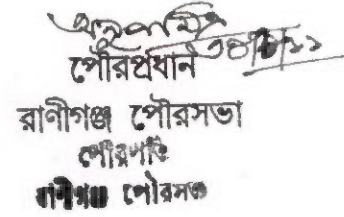 পৌরপ্রধান
রাণীগঞ্জ পৌরসভা
পৌরপতি
রাণীগঞ্জ পৌরসভা